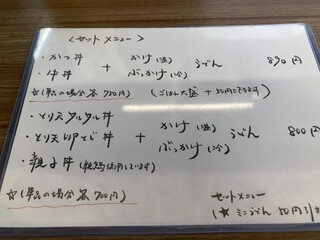 〈セットメニュー〉
・かつ丼
・牛丼
+ かけ(温) ぶっかけ(冷) うどん 890円
☆(単品の場合各 750円) (ごはん大盛 + 50円でできます)
・とり天タルタル丼
・とり天卵とじ丼 + かけ(温) ぶっかけ(冷) うどん 800円
・親子丼
☆(単品の場合各 700円)
セットメニュー
(★ミニうどん 50円引